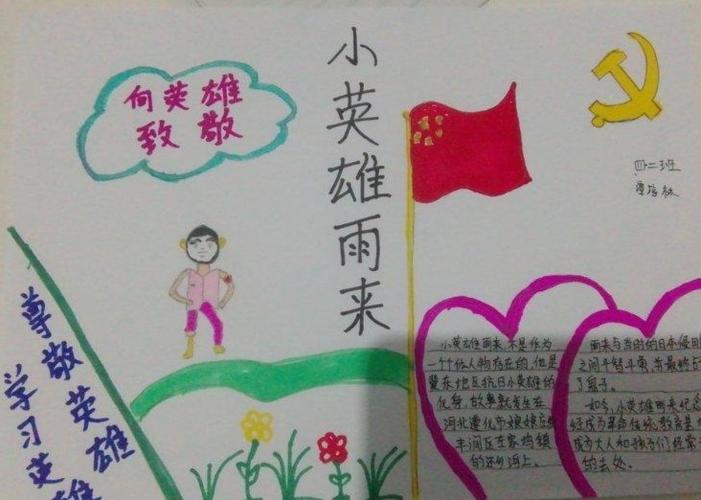 向英雄
致敬
小英雄雨来
四二班
尊敬英雄
学习英雄
小英雄雨来,不是作为
一个个人物存在的,他是
冀东地区抗日小英雄的
化身,故事就发生在
河北遵化市娘娘庄
丰润区左家坞镇
的还乡河上。
雨来与当时的日本侵
之间斗智斗勇,并最终
了鬼子。
如今,小英雄雨来纪念
经成为革命传统教育基
成为大人和孩子们经常
的去处。